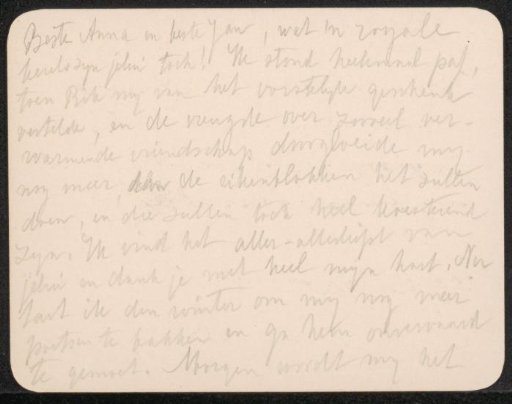 Beste Anna en beste Jan, wat 'n royale
kerels zyn jelui toch! Ik stond heelemaal paf,
toen Rik my van het vorstelyk geschenk
vertelde, en de vreugde over zooveel ver-
warmende vriendschap doorgloeide my
nog meer, dan de eikenblokken het zullen
doen, en die zullen toch heel koesterend
zyn. Ik vind het aller-allerliefst van
jelui en dank je met heel myn hart. Nu
tart ik den winter om my nog meer
poetsen te bakken en ga hem onvervaard
te gemoet. Morgen wordt my het